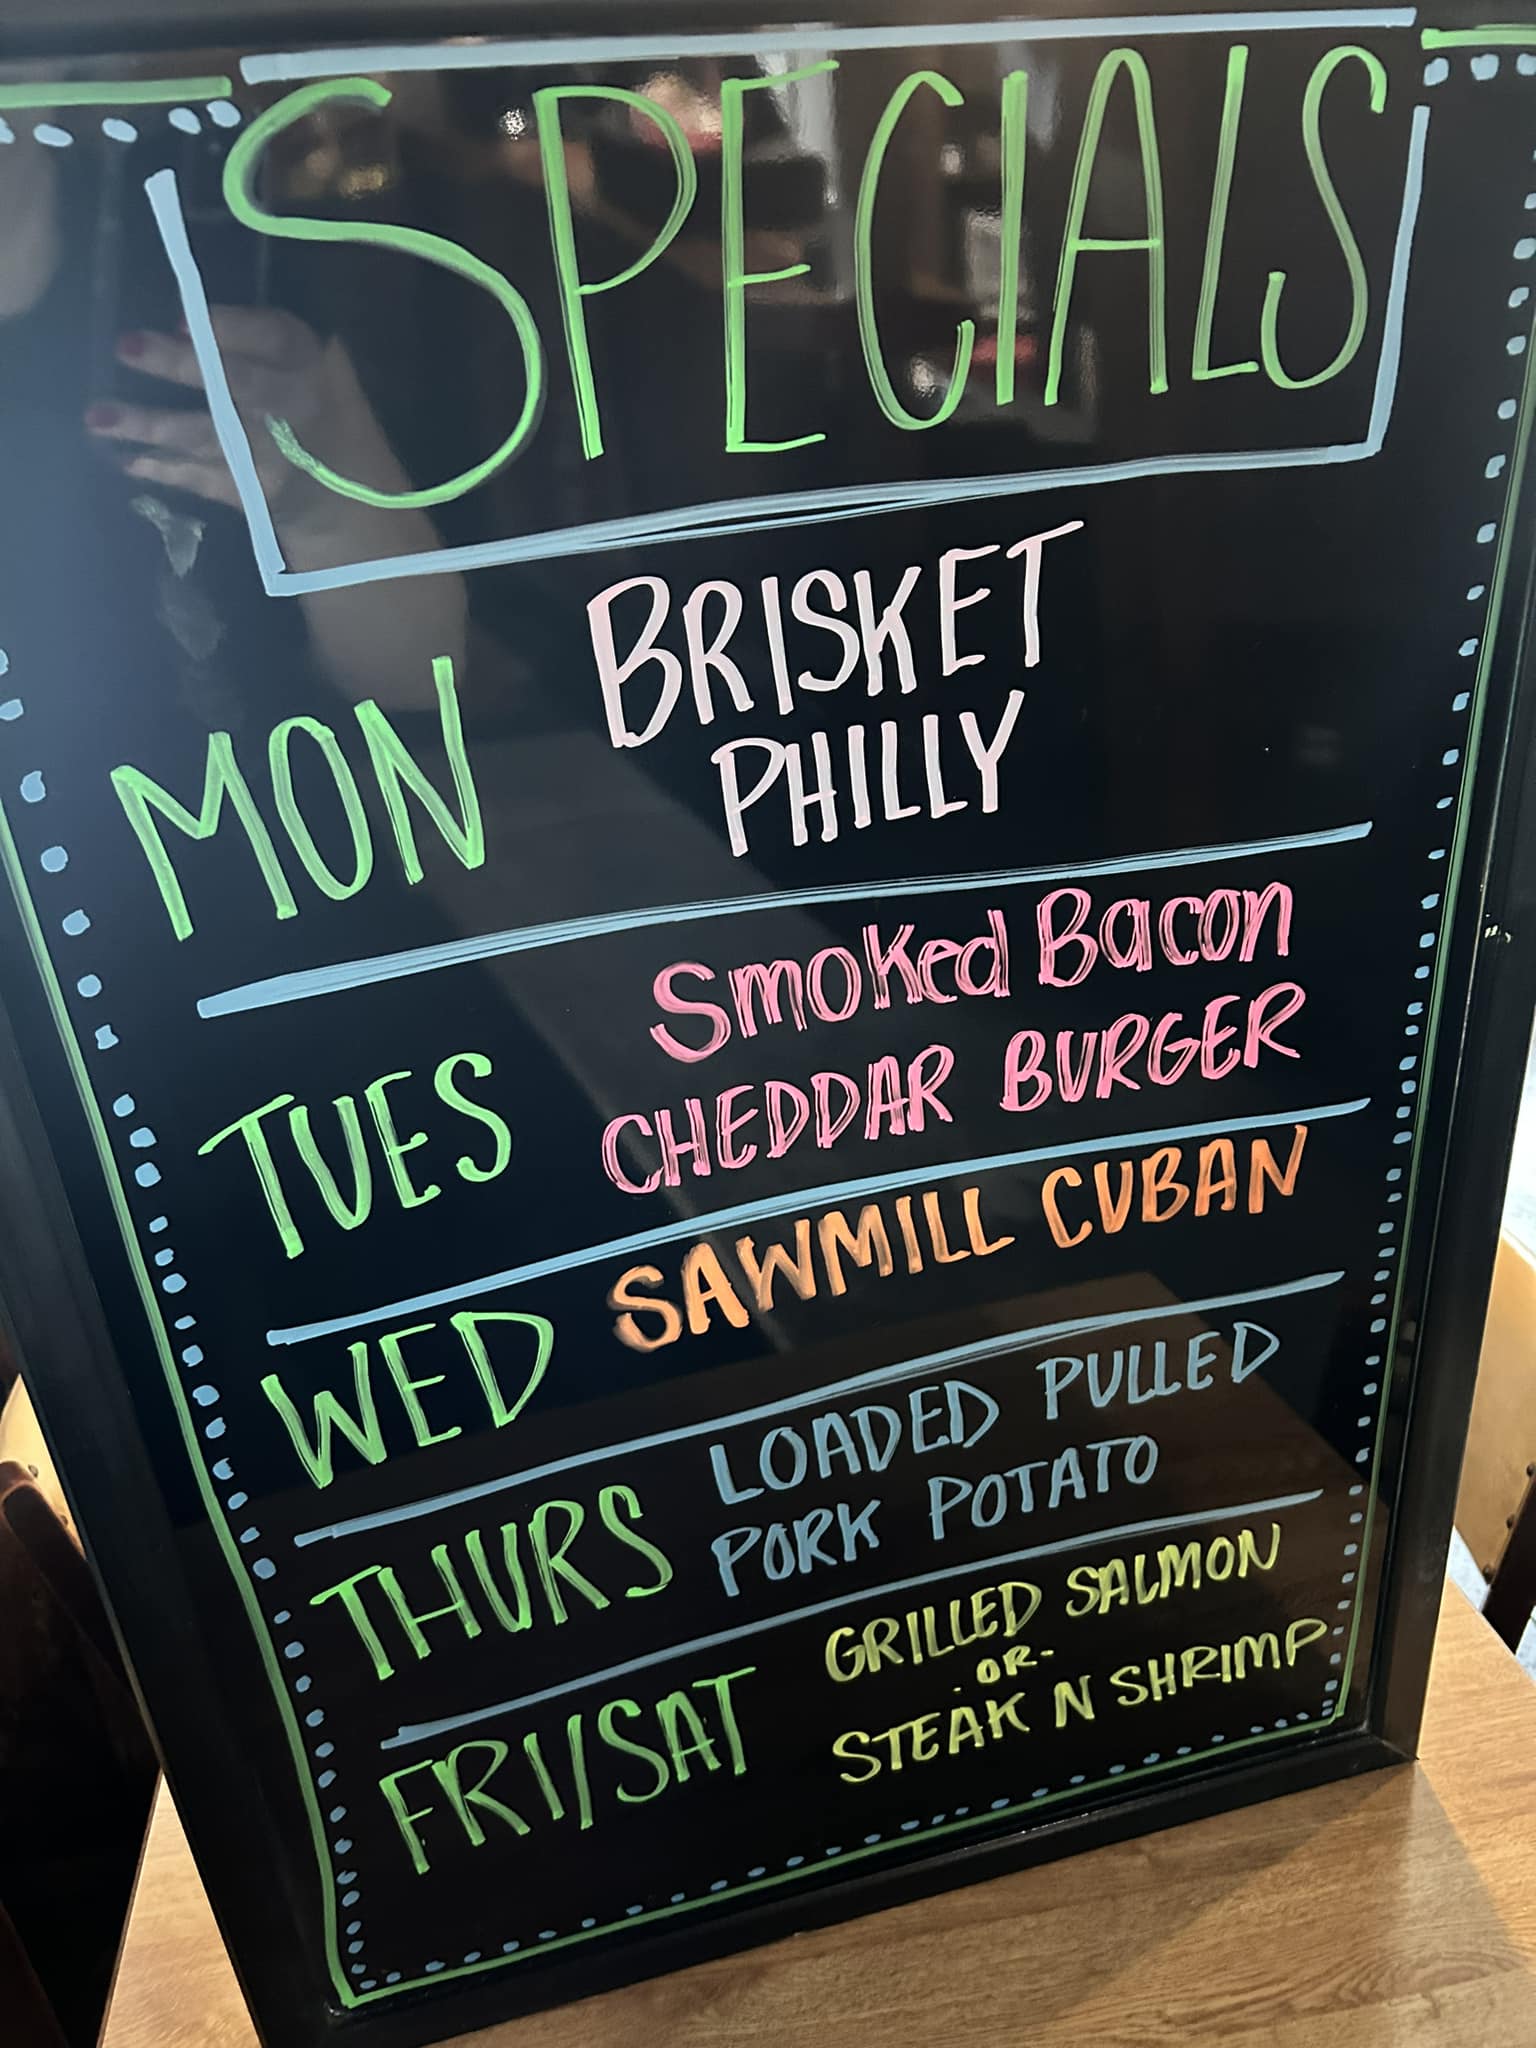 SPECIALS
MON
BRISKET
PHILLY
TUES
Smoked Bacon
CHEDDAR BURGER
WED
SAWMILL CUBAN
THURS
LOADED PULLED
PORK POTATO
FRI/SAT
GRILLED SALMON
-OR-
STEAK N SHRIMP